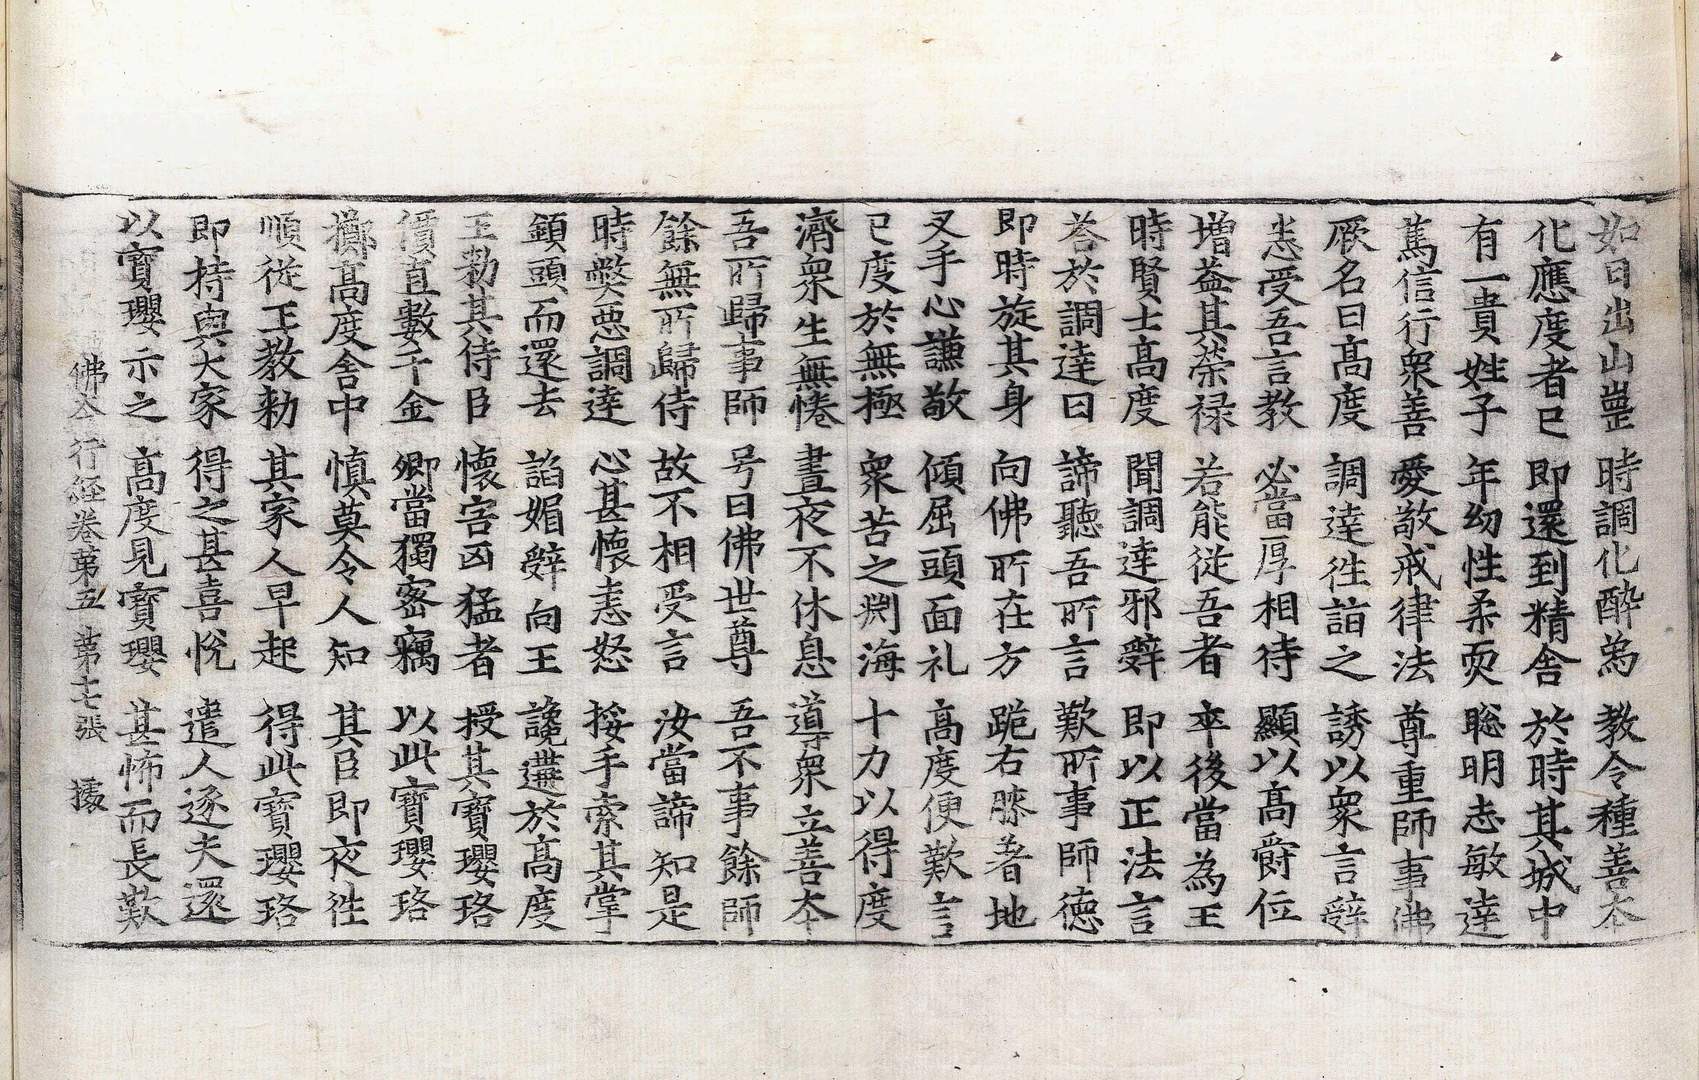 如日出山崗　時調化酔為　教令種善夲
化應度者已　即還到精舎　於時其城中
有一貴姓子　年幼性柔耎　聡明志敏逹
篤信行衆善　愛敬戒律法　尊重師事佛
厥名曰髙度　調逹徃詣之　誘以衆言辤
恚受吾言教　必當厚相待　顯以髙爵位
増益其榮禄　若能從吾者　卒後當為王
時賢士髙度　聞調逹邪辤　即以正法言
荅於調逹曰　諦聽吾所言　歎所事師徳
即時旋其身　向佛所在方　跪右膝著地
叉手心謙敬　傾屈頭面礼　髙度便歎言
已度於無極　衆苦之渕海　十力以得度
濟衆生無惓　晝夜不休息　導衆立善夲
吾所歸事師　号曰佛世尊　吾不事餘師
餘無所歸侍　故不相受言　汝當諦知是
時弊悪調逹　心甚懐恚怒　挼手索其掌
鎮頭而還去　諂媚辤向王　讒遘於髙度
王勑其侍臣　懐害凶猛者　授其寳瓔珞
價直數千金　卿當獨宻竊　以此寳瓔珞
擲髙度舎中　慎莫令人知　其臣即夜徃
順從王教勑　其家人早起　得此寳瓔珞
即持與大家　得之甚喜恱　遣人逐夫還
以寳瓔示之　髙度見寳瓔　甚怖而長歎
佛夲行經卷第五　第十七張　據